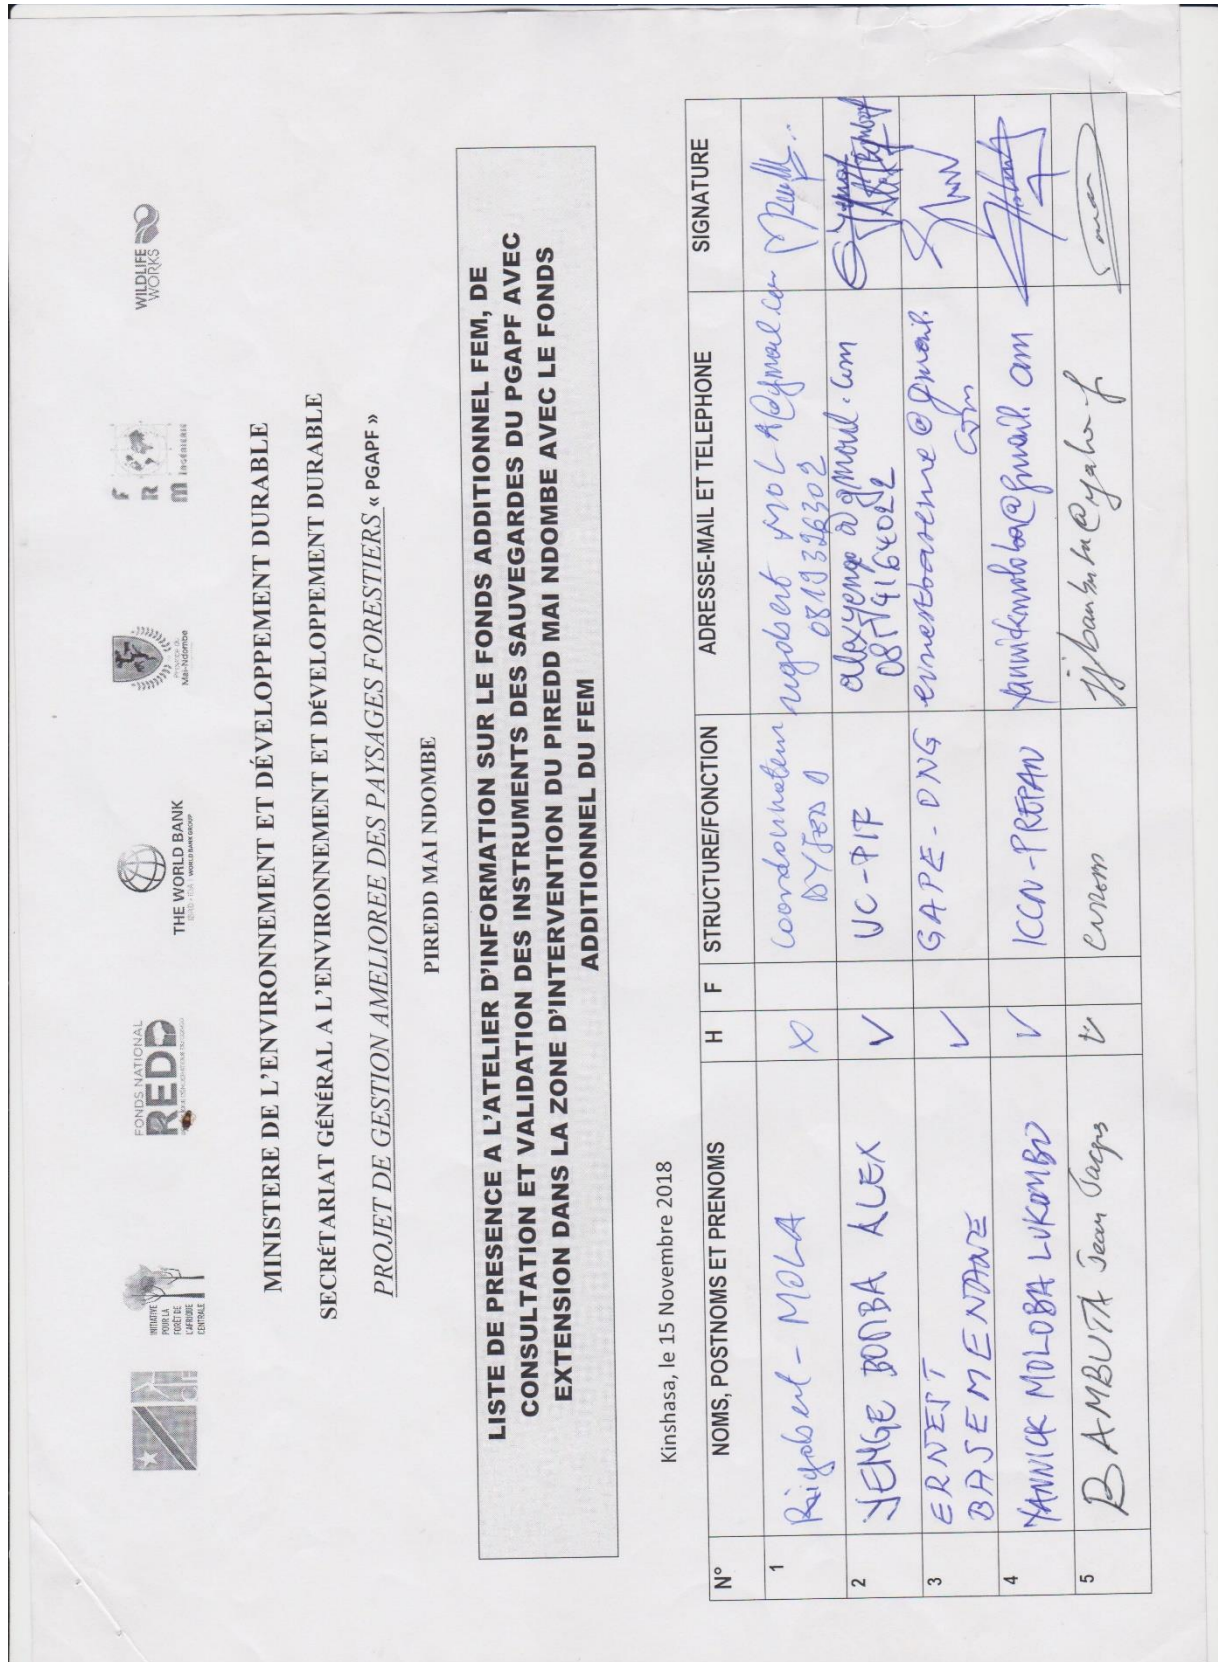 INITIATIVE
POUR LA
FORÊT DE
L'AFRIQUE
CENTRALE
FONDS NATIONAL
REDD
THE WORLD BANK
IBRD • IDA | WORLD BANK GROUP
Province du
Mai-Ndombe
F
R
m Ingénierie
WILDLIFE
WORKS
MINISTERE DE L'ENVIRONNEMENT ET DÉVELOPPEMENT DURABLE
SECRÉTARIAT GÉNÉRAL A L'ENVIRONNEMENT ET DÉVELOPPEMENT DURABLE
PROJET DE GESTION AMELIOREE DES PAYSAGES FORESTIERS « PGAPF »
PIREDD MAI NDOMBE
LISTE DE PRESENCE A L'ATELIER D'INFORMATION SUR LE FONDS ADDITIONNEL FEM, DE
CONSULTATION ET VALIDATION DES INSTRUMENTS DES SAUVEGARDES DU PGAPF AVEC
EXTENSION DANS LA ZONE D'INTERVENTION DU PIREDD MAI NDOMBE AVEC LE FONDS
ADDITIONNEL DU FEM
Kinshasa, le 15 Novembre 2018
N° NOMS, POSTNOMS ET PRENOMS H F STRUCTURE/FONCTION ADRESSE-MAIL ET TELEPHONE SIGNATURE
1 Rigobert - MOLA X Coordonnateur
2 YENGE BOMBA ALEX V UC-PIF
3 ERNEST V GAPE-ONG
BASEMENTANE
4 YANNICK MOLOBA LUKOMBO V ICCN-PREPAN yannickmoloba@gmail.com
5 BAMBUTA Jean Jacques V